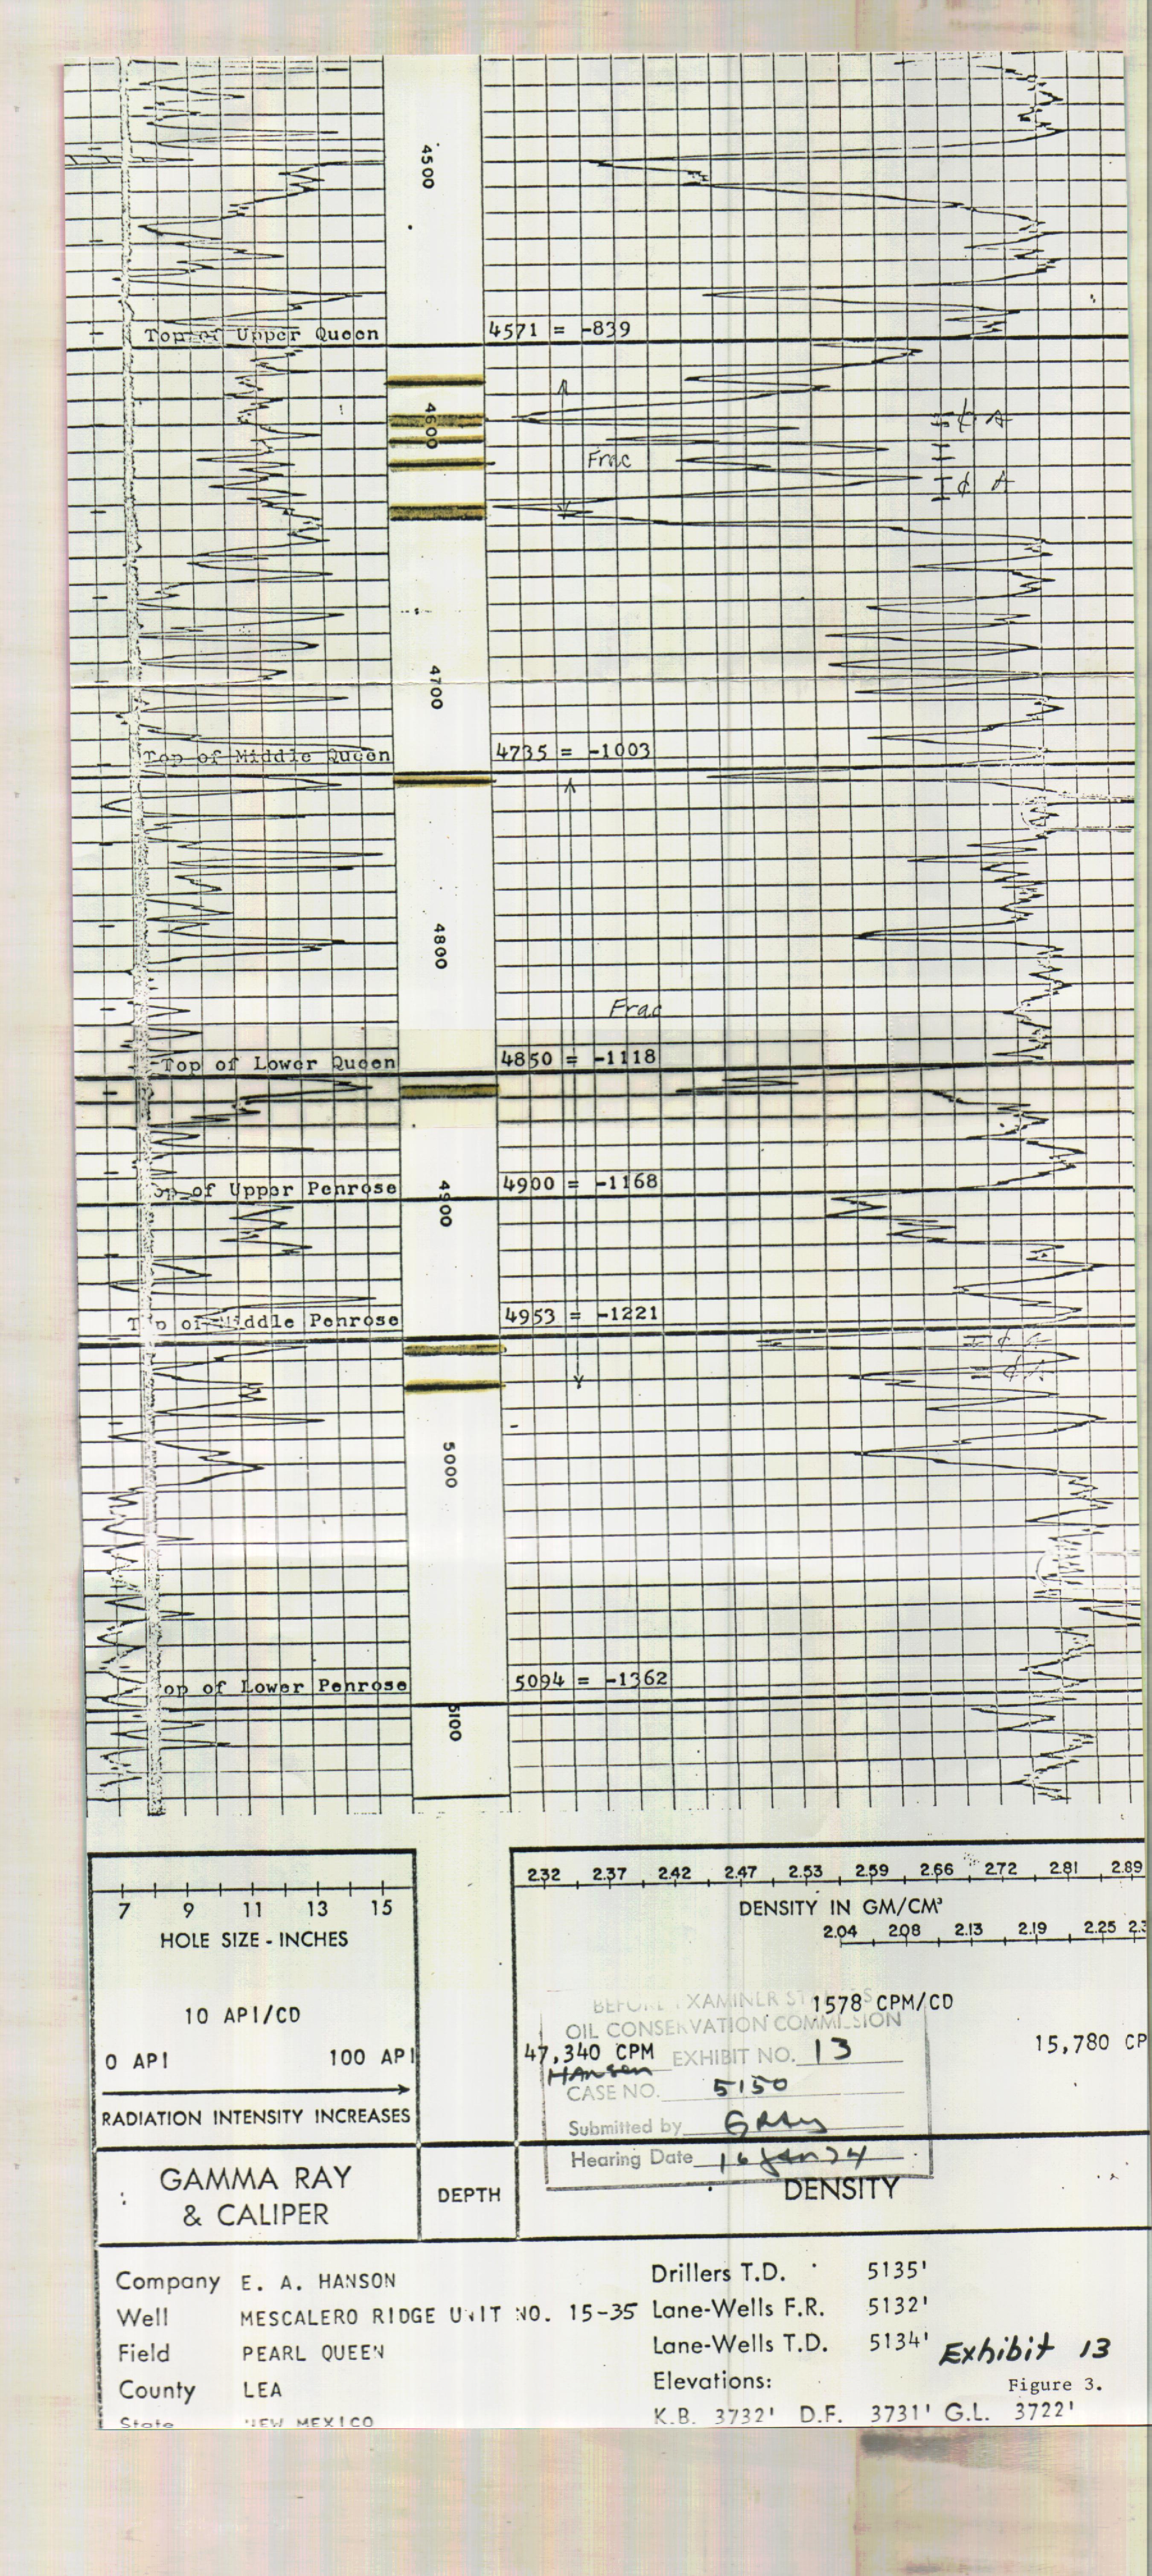 4500
Top of Upper Queen 4571 = -839
4600
Frac
¢ A
¢ A
4700
Top of Middle Queen 4735 = -1003
4800
Frac
Top of Lower Queen 4850 = -1118
op of Upper Penrose 4900 = -1168
4900
Top of Middle Penrose 4953 = -1221
5000
op of Lower Penrose 5094 = -1362
5100
2.32 2.37 2.42 2.47 2.53 2.59 2.66 2.72 2.81 2.89
7 9 11 13 15
HOLE SIZE - INCHES
DENSITY IN GM/CM³
2.04 2.08 2.13 2.19 2.25 2.3
10 API/CD
1578 CPM/CD
0 API 100 API
47,340 CPM
15,780 CP
RADIATION INTENSITY INCREASES
BEFORE EXAMINER
OIL CONSERVATION COMMISSION
EXHIBIT NO. 13
Hanson
CASE NO. 5150
Submitted by Gray
Hearing Date 16 Jan 74
GAMMA RAY
& CALIPER
DEPTH
DENSITY
Company E. A. HANSON
Well MESCALERO RIDGE UNIT NO. 15-35
Field PEARL QUEEN
County LEA
State NEW MEXICO
Drillers T.D. 5135'
Lane-Wells F.R. 5132'
Lane-Wells T.D. 5134'
Elevations:
K.B. 3732' D.F. 3731' G.L. 3722'
Exhibit 13
Figure 3.